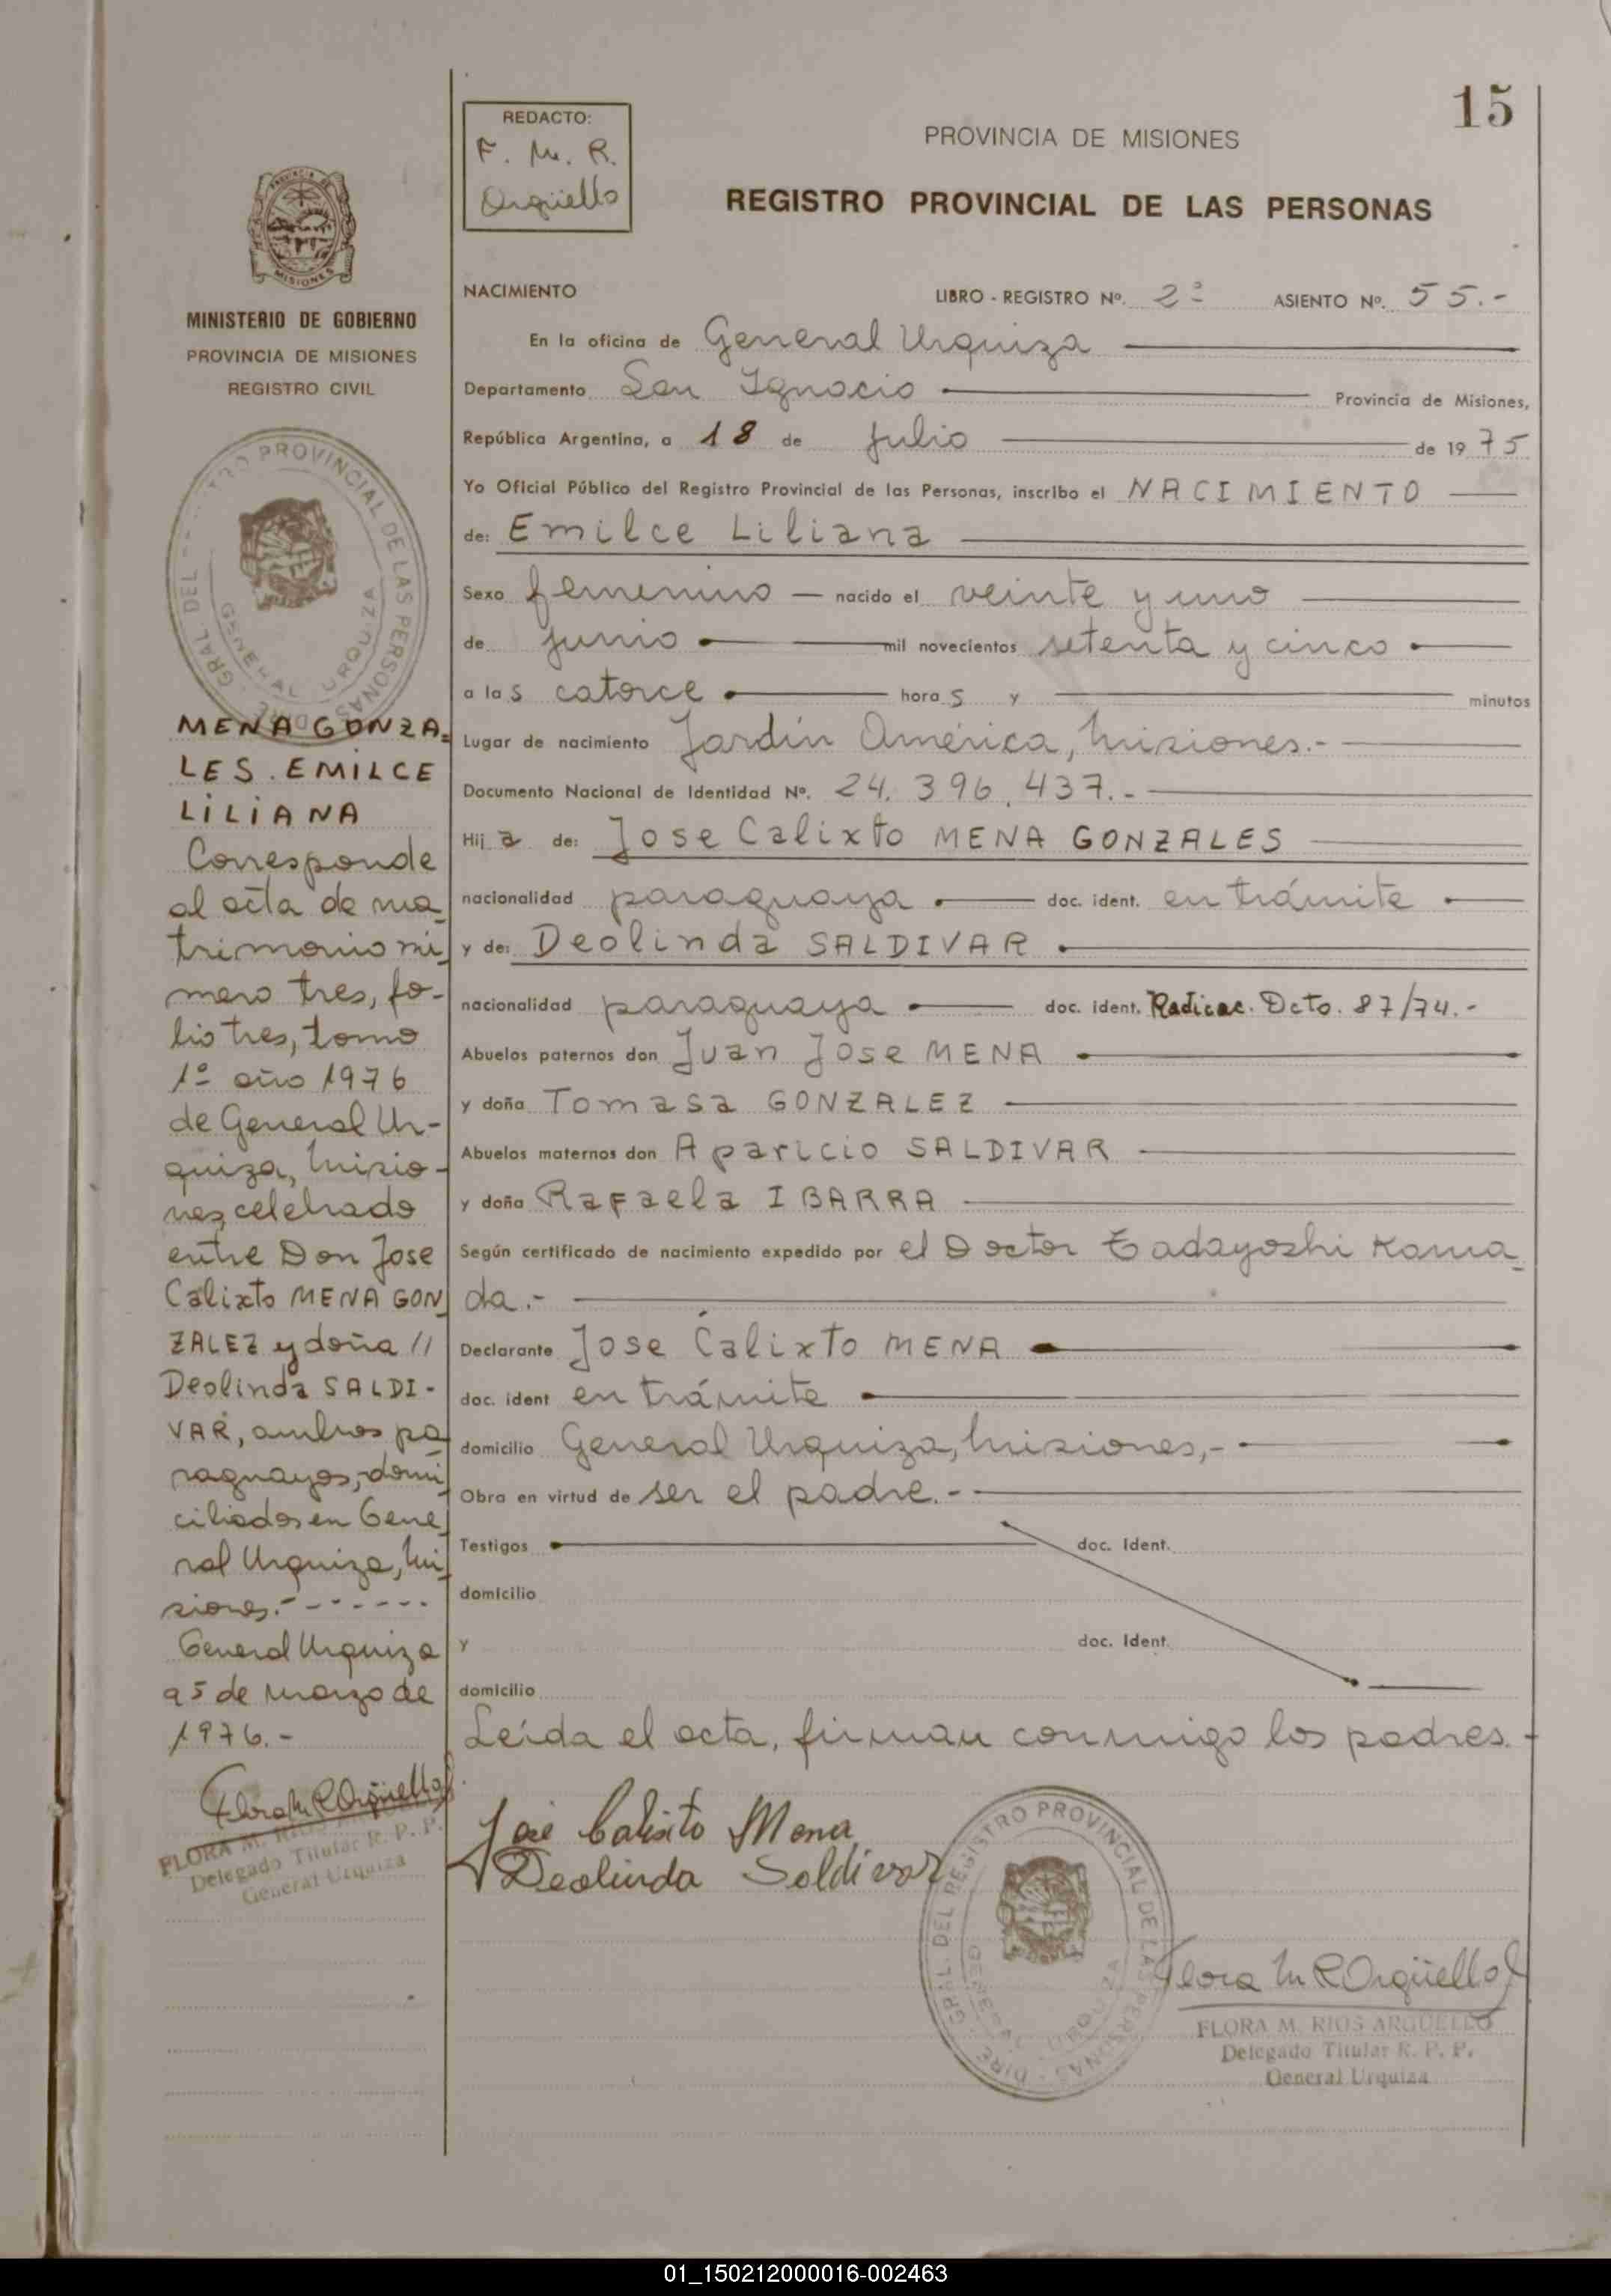 15
REDACTO:
F. M. R.
Argüello
PROVINCIA DE MISIONES
REGISTRO PROVINCIAL DE LAS PERSONAS
MISIONES
MINISTERIO DE GOBIERNO
PROVINCIA DE MISIONES
REGISTRO CIVIL
GRAL. DEL REGISTRO PROVINCIAL DE LAS PERSONAS
GENERAL URQUIZA
MENA GONZA-
LES. EMILCE
LILIANA
Corresponde
al acta de ma-
trimonio nú-
mero tres, fo-
lio tres, tomo
1º año 1976
de General Ur-
quiza, Misio-
nes, celebrado
entre Don Jose
Calixto MENA GON
ZALEZ y doña //
Deolinda SALDI-
VAR, ambos pa-
raguayos, domi-
ciliados en Gene-
ral Urquiza, Mi-
siones.- - - - - - -
General Urquiza
a 5 de marzo de
1976.-
Flora M R Argüello
FLORA M. RIOS
Delegado Titular R. P. P.
General Urquiza
NACIMIENTO LIBRO - REGISTRO Nº. 2º ASIENTO Nº. 55.-
En la oficina de General Urquiza
Departamento San Ignacio Provincia de Misiones,
República Argentina, a 18 de Julio de 1975
Yo Oficial Público del Registro Provincial de las Personas, inscribo el NACIMIENTO
de: Emilce Liliana
Sexo femenino — nacido el veinte y uno
de junio mil novecientos setenta y cinco
a las catorce horas y minutos
Lugar de nacimiento Jardín América, Misiones.-
Documento Nacional de Identidad Nº. 24.396.437.-
Hija de: Jose Calixto MENA GONZALES
nacionalidad paraguaya doc. ident. en trámite
y de: Deolinda SALDIVAR
nacionalidad paraguaya doc. ident. Radicac. Dcto. 87/74.-
Abuelos paternos don Juan Jose MENA
y doña Tomasa GONZALEZ
Abuelos maternos don Aparicio SALDIVAR
y doña Rafaela IBARRA
Según certificado de nacimiento expedido por el Doctor Tadayoshi Kama-
da.-
Declarante Jose Calixto MENA
doc. ident en trámite
domicilio General Urquiza, Misiones,-
Obra en virtud de ser el padre.-
Testigos doc. Ident.
domicilio
y doc. Ident.
domicilio
Leída el acta, firman conmigo los padres.-
José Calisito Mena
Deolinda Soldivar
GRAL. DEL REGISTRO PROVINCIAL DE LAS PERSONAS
GENERAL URQUIZA
Flora M R Argüello
FLORA M. RIOS ARGÜELLO
Delegado Titular R. P. P.
General Urquiza
01_150212000016-002463